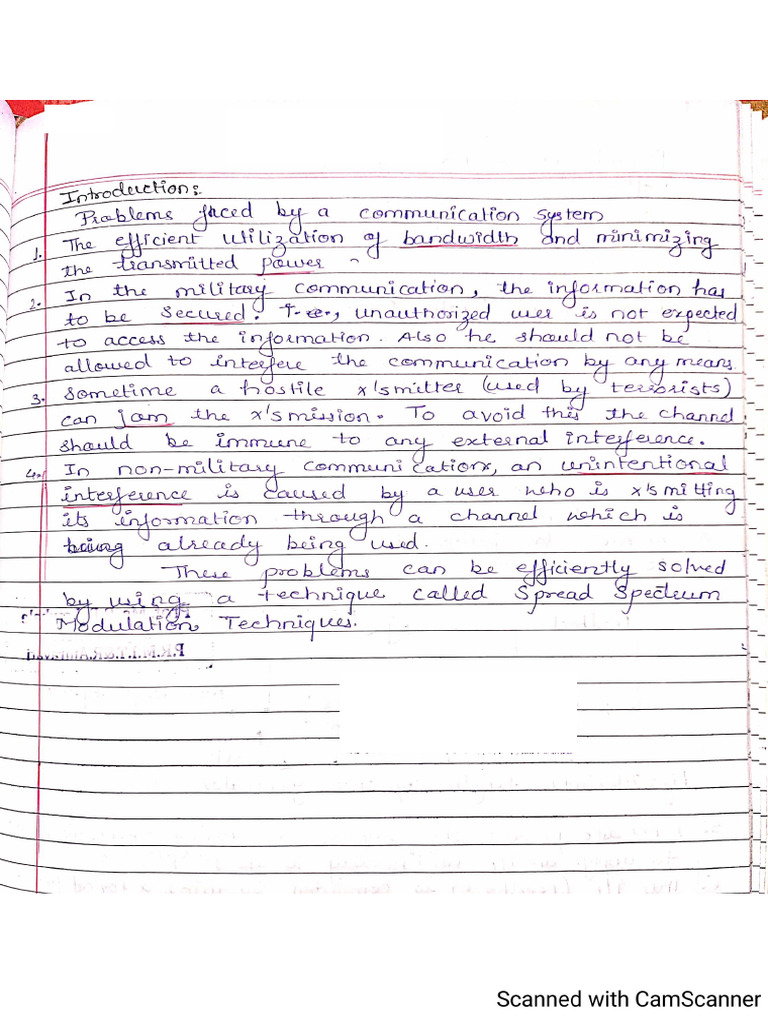 Introduction:
Problems faced by a communication system
1. The efficient utilization of bandwidth and minimizing
the transmitted power
2. In the military communication, the information has
to be secured. i.e., unauthorized user is not expected
to access the information. Also he should not be
allowed to interfere the communication by any means.
3. Sometime a hostile x'smitter (used by terrorists)
can jam the x'smission. To avoid this the channel
should be immune to any external interference.
4. In non-military communication, an unintentional
interference is caused by a user who is x'smitting
its information through a channel which is
being already being used.
These problems can be efficiently solved
by using a technique called Spread Spectrum
Modulation Techniques.
Scanned with CamScanner